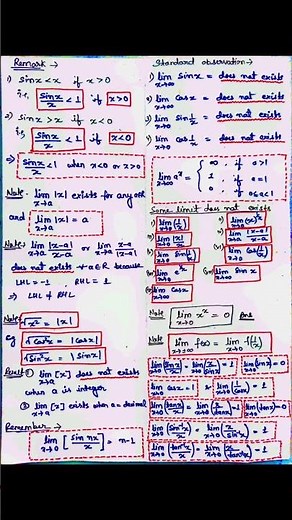 Remark →
1) sinx < x if x > 0
i.e, sinx/x < 1 if x > 0
2) sinx > x if x < 0
i.e, sinx/x < 1 if x < 0
⇒ sinx/x < 1 when x < 0 or x > 0
Note. lim x→a |x| exists for any a∈R
and lim x→a |x| = a
Note. lim x→a |x-a|/x-a or lim x→a x-a/|x-a|
does not exists ∀ a∈R because
LHL = -1 RHL = 1
⇒ LHL ≠ RHL
Note √x² = |x|
Eg √cos²x = |cosx|
√sin²x = |sinx|
Result ① lim x→a [x] does not exists
when a is integer
② lim x→a [x] exists when a = decimal
Remember →
lim x→0 [sin nx/x] = n-1
Standard observation →
lim x→∞ sinx = does not exists
lim x→∞ cosx = does not exists
lim x→0 sin 1/x = does not exists
lim x→0 cos 1/x = does not exists
lim x→∞ aˣ = { ∞ if a>1
1 if a=1
0 if 0≤a<1
Some limit does not exists
lim x→0 |x|/x
lim x→a |x-a|/x-a
lim x→∞ sin x
lim x→∞ cosx
Note lim x→0 xˣ = 0
Note lim x→∞ f(x) = lim x→0 f(1/x)
lim x→0 (sinx/x) = lim x→0 (x/sinx) = 1 lim x→0 (sinx) = 0
lim x→0 cosx = 1 & lim x→0 (1/cosx) = 1
lim x→0 (tanx/x) = lim x→0 (x/tanx) = 1 lim x→0 (tanx) = 0
lim x→0 (sin⁻¹x/x) = lim x→0 (x/sin⁻¹x) = 1
lim x→0 (tan⁻¹x/x) = lim x→0 (x/tan⁻¹x) = 1